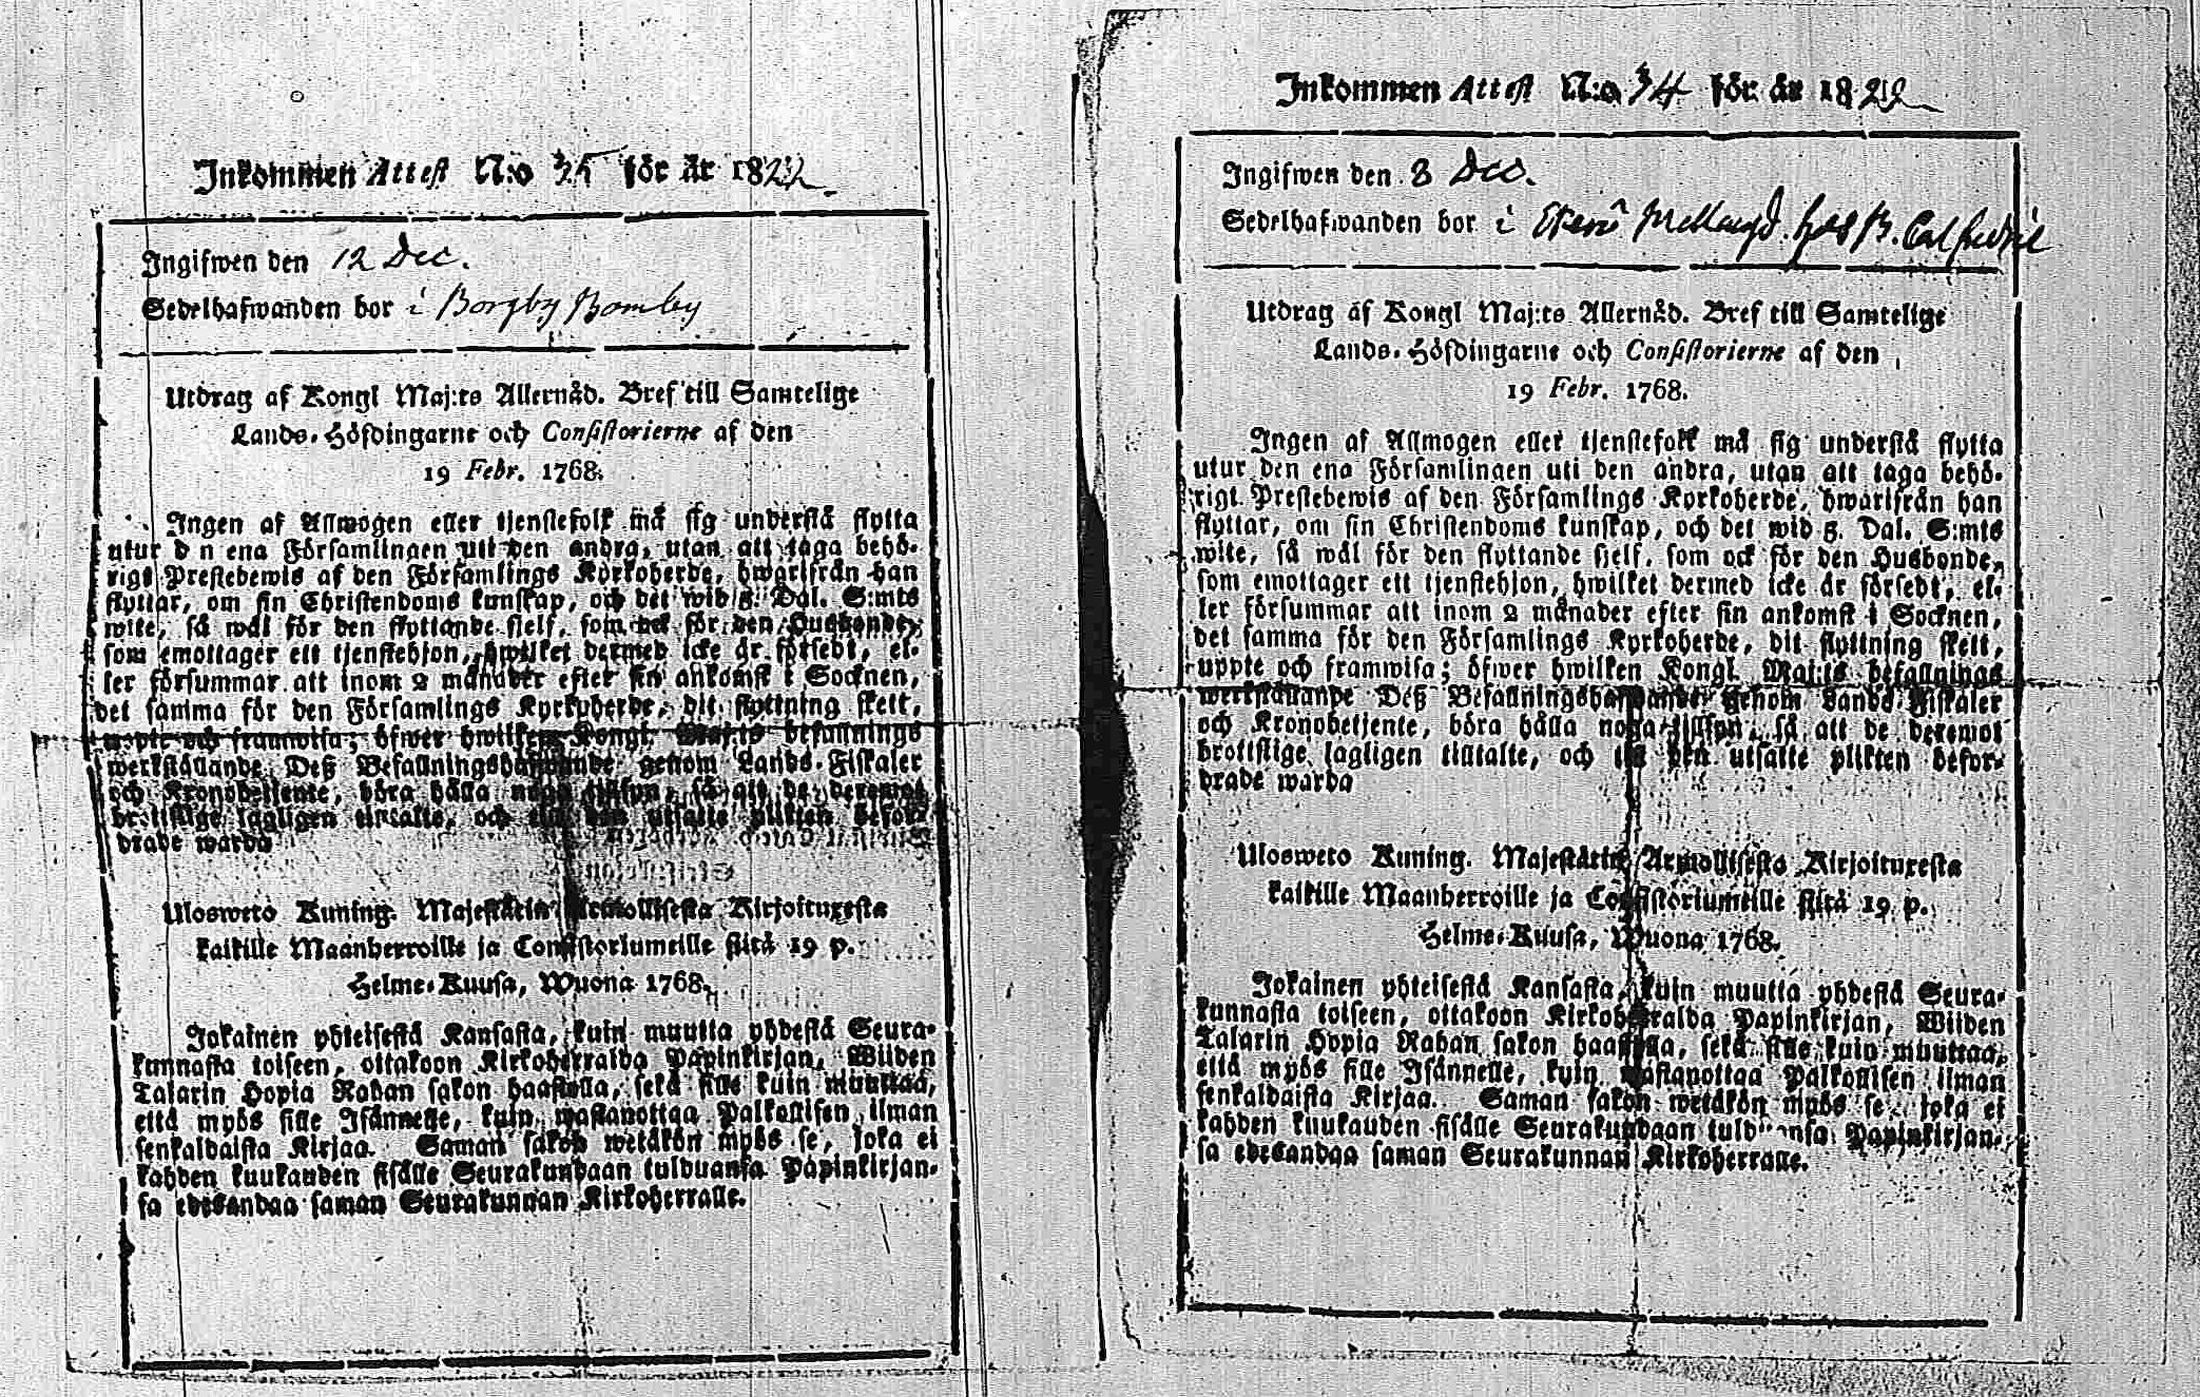 Inkommen Attest N:o 35 för år 1822
Ingifwen den 12 Dec.
Sedelhafwanden bor i Borgby Bomby
Utdrag af Kongl Maj:ts Allernåd. Bref till Samtelige
Lands-Höfdingarne och Consistorierne af den
19 Febr. 1768.
Ingen af Allmogen eller tjenstefolk må sig understå flytta
utur den ena Församlingen uti den andra, utan att taga behö-
rigt Prestebewis af den Församlings Kyrkoherde, hwarifrån han
flyttar, om sin Christendoms kunskap, och det wid 5. Dal. S:mts
wite, så wäl för den flyttande sjelf, som ock för den Husbonde,
som emottager ett tjenstehjon, hwilket dermed icke är försedt, el-
ler försummar att inom 2 månader efter sin ankomst i Socknen,
det samma för den Församlings Kyrkoherde, dit flyttning skett,
uppte och framwisa; öfwer hwilken Kongl. Maj:ts befallnings
werkställande Deß Befallningshafwande genom Lands-Fiskaler
och Kronobetjente, böra hålla noga tillsyn, så att de deremot
brottslige lagligen tilltalte, och till den utsatte plikten befor-
drade warda
Ulosweto Kuning. Majestätin Armollisesta Kirjoituxesta
kaikille Maanherroille ja Consistoriumeille siitä 19 p.
Helme-Kuusa, Wuona 1768.
Jokainen yhteisestä Kansasta, kuin muutta yhdestä Seura-
kunnasta toiseen, ottakoon Kirkoherralda Papinkirjan, Wiiden
Talarin Hopia Rahan sakon haastolla, sekä sille kuin muuttaa,
että myös sille Isännelle, kuin wastanottaa Palkollisen ilman
senkaldaista Kirjaa. Saman sakon wetäkön myös se, joka ei
kahden kuukauden sisälle Seurakundaan tulduansa Papinkirjan-
sa edesandaa saman Seurakunnan Kirkoherralle.
Inkommen Attest N:o 34 för år 1822
Ingifwen den 8 Dec.
Sedelhafwanden bor i
Utdrag af Kongl Maj:ts Allernåd. Bref till Samtelige
Lands-Höfdingarne och Consistorierne af den
19 Febr. 1768.
Ingen af Allmogen eller tjenstefolk må sig understå flytta
utur den ena Församlingen uti den andra, utan att taga behö-
rigt Prestebewis af den Församlings Kyrkoherde, hwarifrån han
flyttar, om sin Christendoms kunskap, och det wid 5. Dal. S:mts
wite, så wäl för den flyttande sjelf, som ock för den Husbonde,
som emottager ett tjenstehjon, hwilket dermed icke är försedt, el-
ler försummar att inom 2 månader efter sin ankomst i Socknen,
det samma för den Församlings Kyrkoherde, dit flyttning skett,
uppte och framwisa; öfwer hwilken Kongl. Maj:ts befallnings
werkställande Deß Befallningshafwande genom Lands-Fiskaler
och Kronobetjente, böra hålla noga tillsyn, så att de deremot
brottslige lagligen tilltalte, och till den utsatte plikten befor-
drade warda
Ulosweto Kuning. Majestätin Armollisesta Kirjoituxesta
kaikille Maanherroille ja Consistoriumeille siitä 19 p.
Helme-Kuusa, Wuona 1768.
Jokainen yhteisestä Kansasta, kuin muutta yhdestä Seura-
kunnasta toiseen, ottakoon Kirkoherralda Papinkirjan, Wiiden
Talarin Hopia Rahan sakon haastolla, sekä sille kuin muuttaa,
että myös sille Isännelle, kuin wastanottaa Palkollisen ilman
senkaldaista Kirjaa. Saman sakon wetäkön myös se, joka ei
kahden kuukauden sisälle Seurakundaan tulduansa Papinkirjan-
sa edesandaa saman Seurakunnan Kirkoherralle.